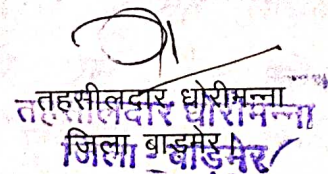 तहसीलदार धोरीमन्ना
तहसीलदार धोरीमन्ना
जिला बाड़मेर।
जिला - बाड़मेर